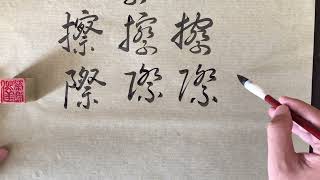 擦擦擦
際際際